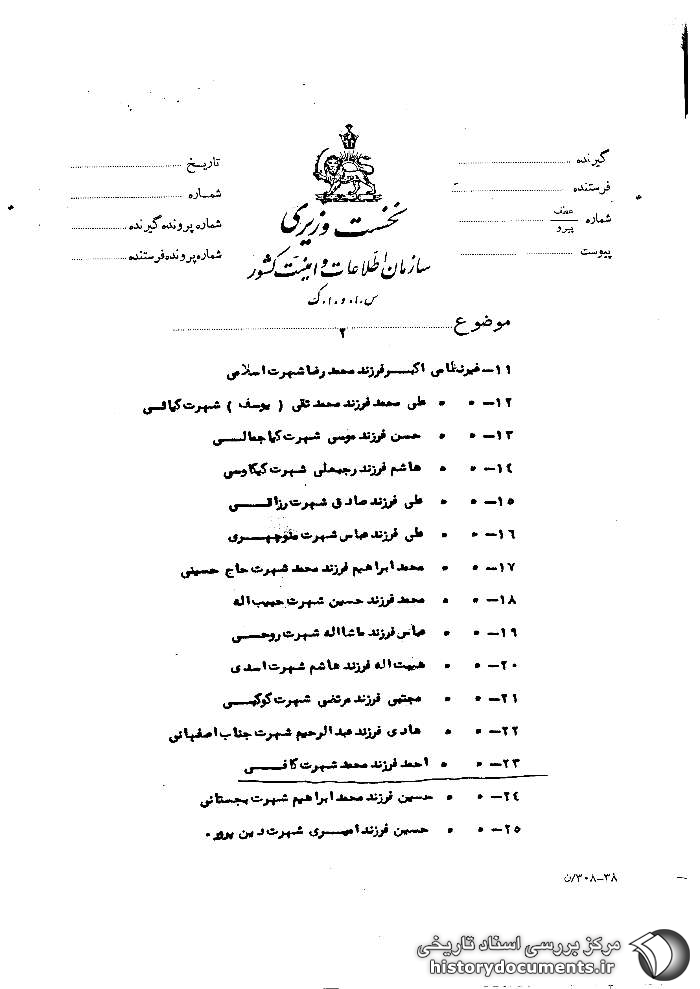 گیرنده
فرستنده
شماره عطف
پیرو
پیوست
تاریخ
شماره
شماره پرونده گیرنده
شماره پرونده فرستنده
نخست وزیری
سازمان اطلاعات و امنیت کشور
س.ا.و.ا.ک
موضوع
۲
۱۱-غیرنظامی اکبر فرزند محمد رضا شهرت اسلامی
۱۲- " " علی محمد فرزند محمد تقی ( یوسف ) شهرت کیائی
۱۳- " " حسن فرزند موسی شهرت کیا جمالی
۱۴- " " هاشم فرزند رجبعلی شهرت کیکاوسی
۱۵- " " علی فرزند صادق شهرت رزاقی
۱۶- " " علی فرزند عباس شهرت منوچهری
۱۷- " " محمد ابراهیم فرزند محمد شهرت حاج حسینی
۱۸- " " محمد فرزند حسین شهرت حبیب اله
۱۹- " " عباس فرزند ماشااله شهرت روحی
۲۰- " " هیبت اله فرزند هاشم شهرت اسدی
۲۱- " " مجتبی فرزند مرتضی شهرت کوکبی
۲۲- " " هادی فرزند عبدالرحیم شهرت جناب اصفهانی
۲۳- " " احمد فرزند محمد شهرت کافی
۲۴- " " حسین فرزند محمد ابراهیم شهرت بجستانی
۲۵- " " حسین فرزند امیری شهرت دین پرور.
۳۸-۳۰۸/ن
مرکز بررسی اسناد تاریخی
historydocuments.ir